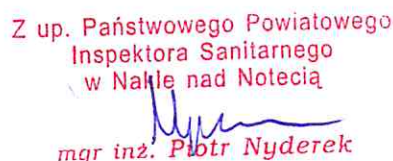 Z up. Państwowego Powiatowego
Inspektora Sanitarnego
w Nakle nad Notecią
mgr inż. Piotr Nyderek